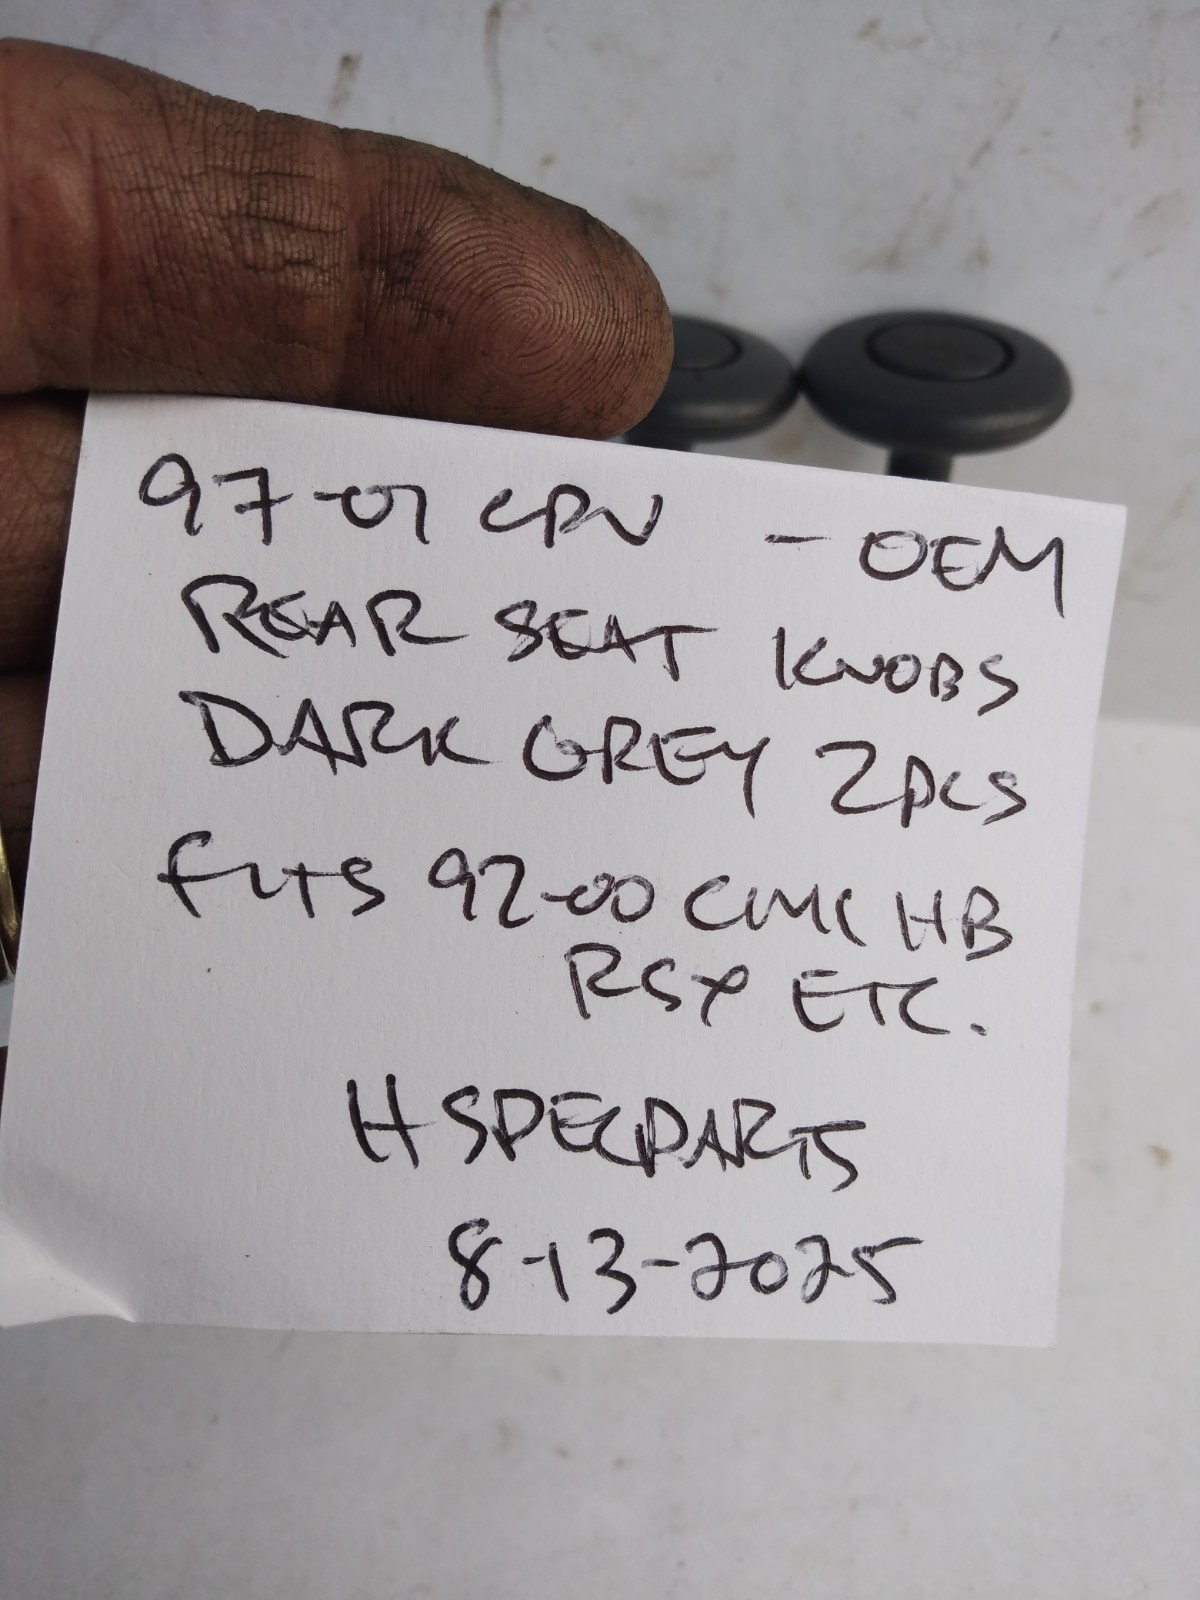 97-01 CRV - OEM
REAR SEAT KNOBS
DARK GREY 2PCS
FITS 92-00 CIVIC HB
RSX ETC.
HSPECPARTS
8-13-2025